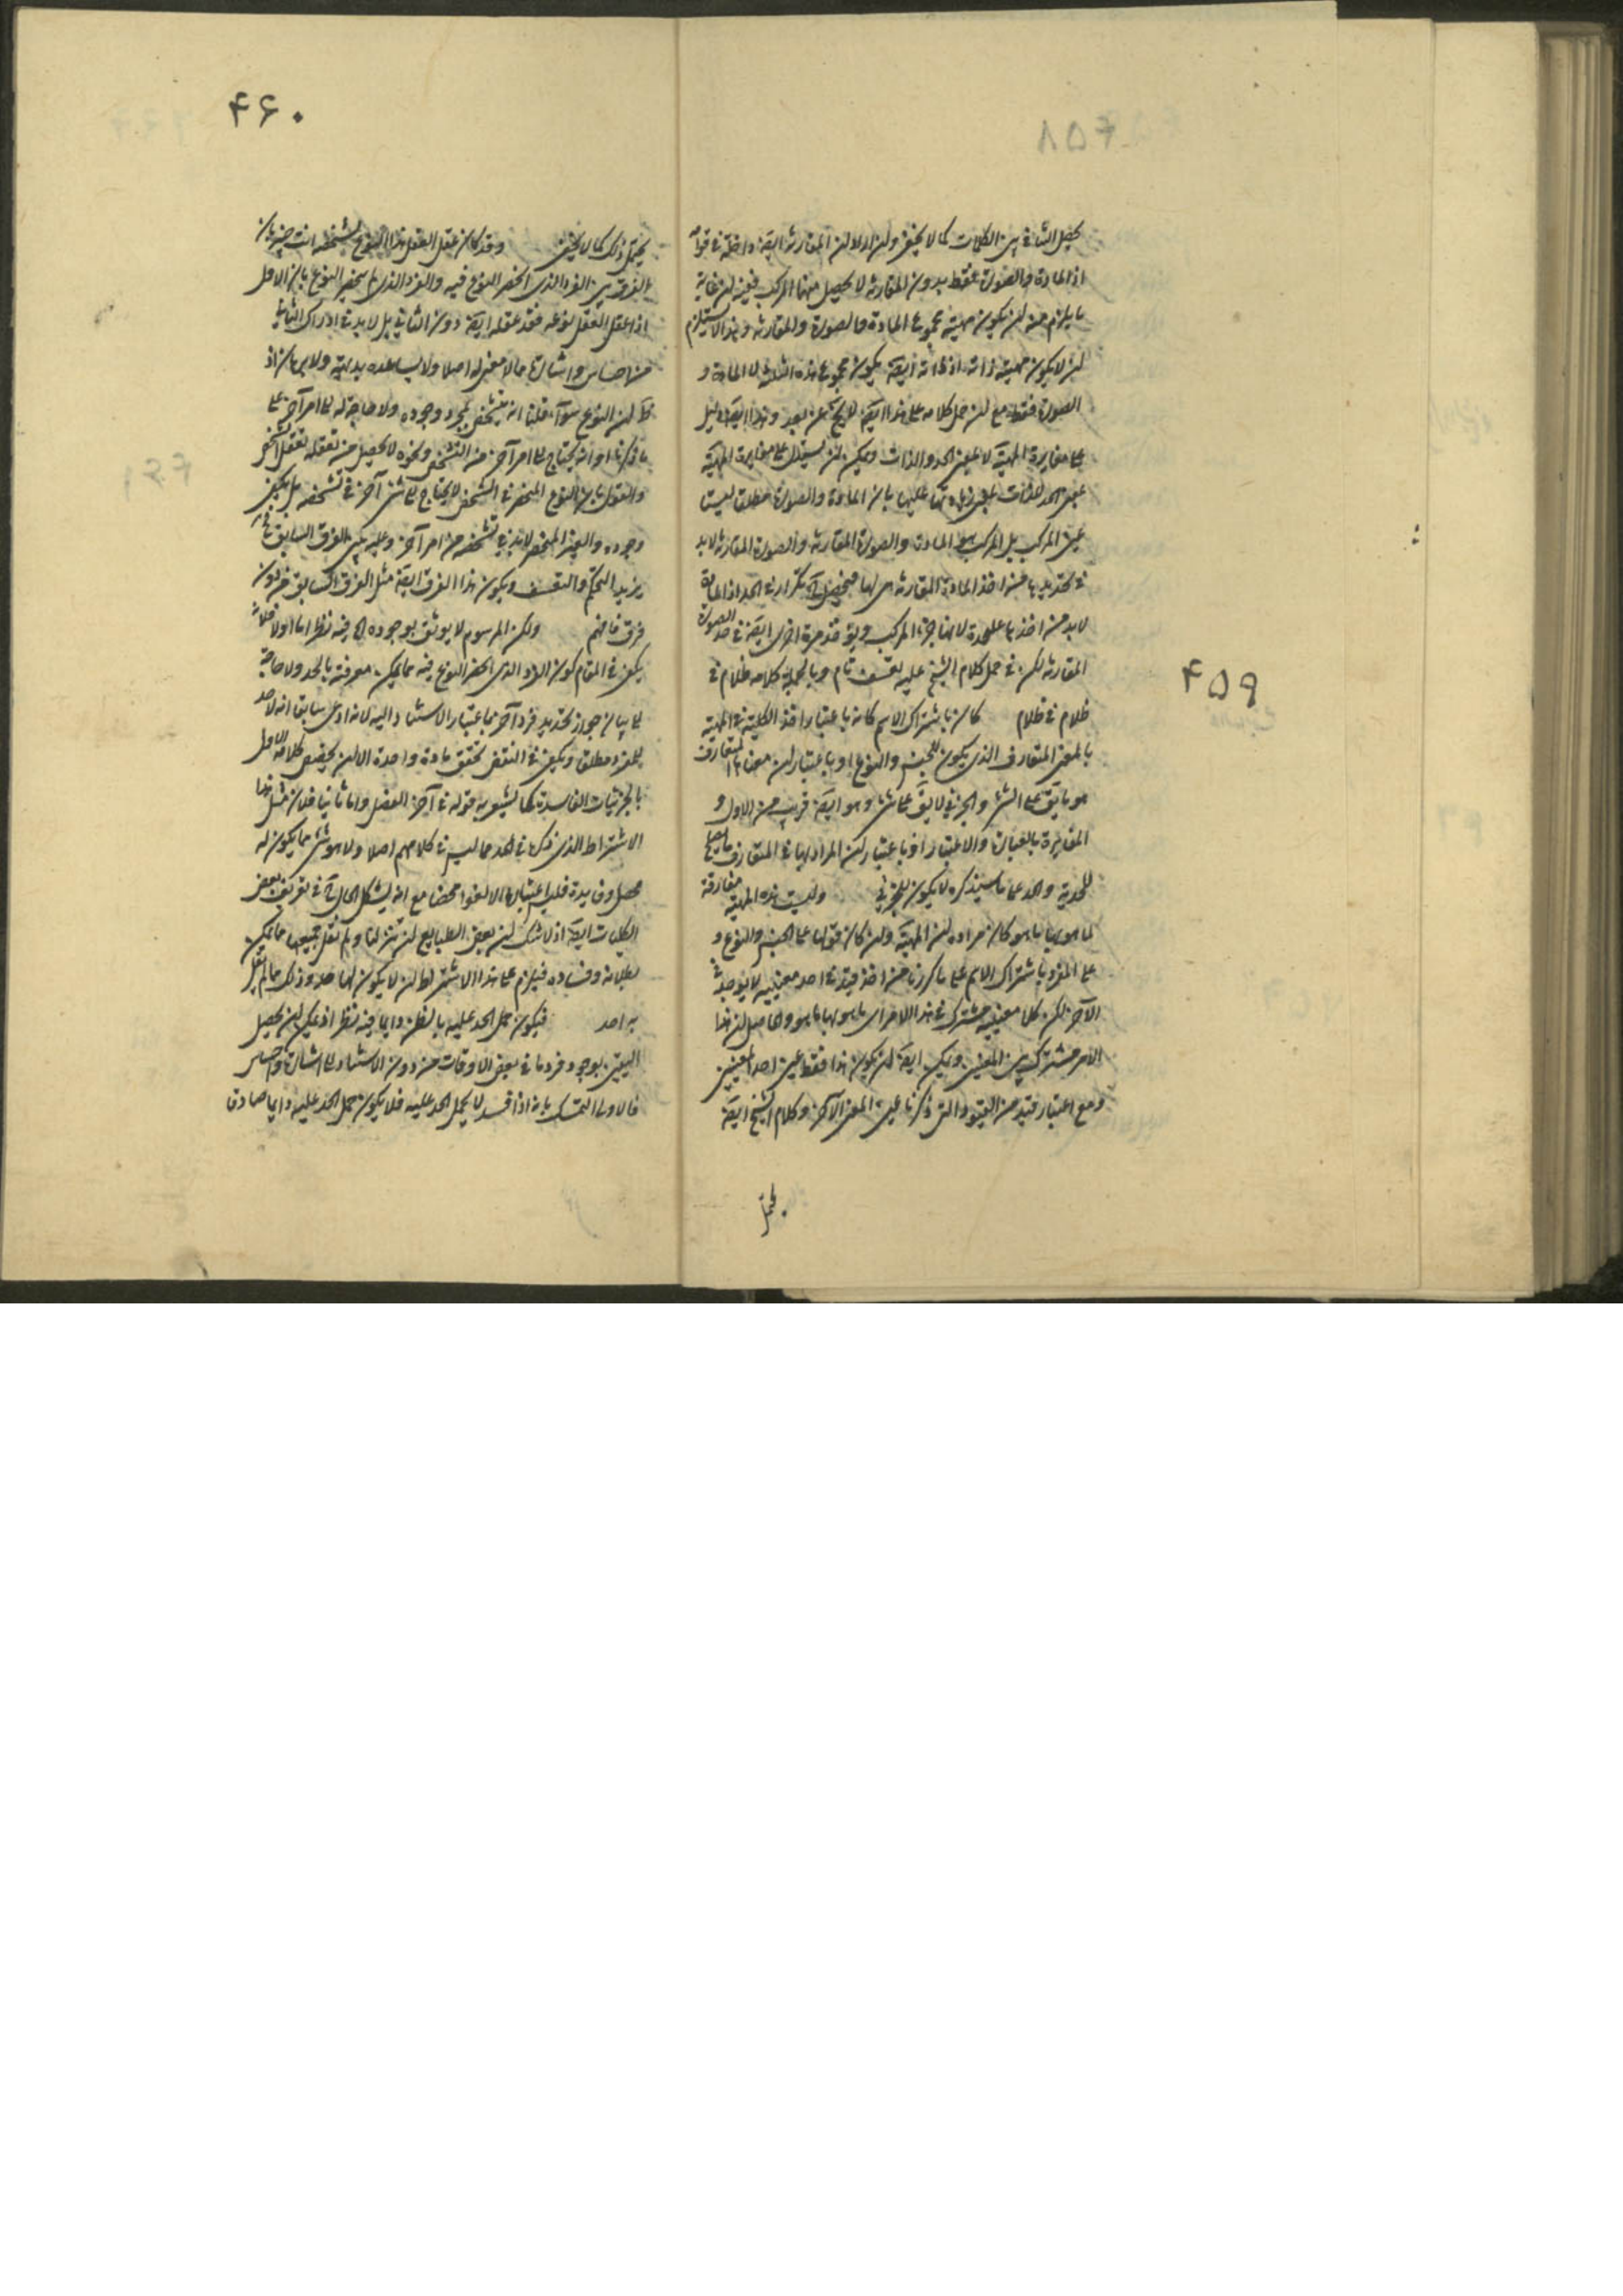 ۴۵۹
يحصل التنافى بين الكلمات كما لا يخفى ولئن اراد ان المقارنة ايضا داخلة فى قوامه
اذ المادة والصورة فقط بدون المقارنة لا يحصل منهما المركب ففيه ان غاية
ما يلزم منه ان يكون مهية مجموع المادة والصورة والمقارنة وهذا لا يستلزم
ان لا يكون مهية ذاته اذ ذاته ايضا يكون مجموع هذه الثلثة لا المادة و
الصورة فقط مع ان حمل كلامه على هذا ايضا لا يخ عن بعد وهذا ايضا دليل
على مغايرة المهية لا عين الحد والذات ويمكن ان يستدل على مغايرة المهية
بمعنى الحد للذات بمعنى زيادتها عليها بان المادة والصورة مطلقا ليستا
عين المركب بل المركب هو المادة والصورة المقارنة والصورة المقارنة لا بد
فى تحديدها من اخذ المادة المقارنة لها فيحصل تكرار فى الحد اذ المادة
لا بد من اخذها عليحدة لانها جزء المركب ويؤخذ مرة اخرى ايضا فى حد الصورة
المقارنة لكن فى حمل كلام الشيخ عليه تعسف تام وبالجملة كلامه ظلام فى
ظلام فى ظلام كان باشتراك الاسم كانه باعتبار اخذ الكلية فى المهية
بالمعنى المتعارف الذى يكون للجنس والنوع او باعتبار ان معناها المتعارف
هو ما يق على الشئ والجزئى لا يق على شئ وهو ايضا قريب من الاول و
المغايرة بالعبارة والاعتبار او باعتبار كون المراد بها فى المتعارف ما يصلح
للحدية والحد على ما سيذكره لا يكون للجزئى وليست هذه المهية مفارقة
لما هو بها ما هو كان مراده ان المهية وان كان قولها على الجنس والنوع و
على المفرد باشتراك الاسم على ما كررنا من اخذ قيد فى احد معنييه لا يوجد فى
الآخر لكن كلا معنييه مشترك فى هذا الامر اى ما هو بها ما هو والحاصل ان هذا
الامر مشترك بين المعنيين ويمكن ايضا ان يكون هذا فقط عين احد المعنيين
ومع اعتبار قيد من القيود التى ذكرنا عين المعنى الآخر وكلام الشيخ ايضا
يحتمل
۴۶۰
يحتمل ذلك كما لا يخفى وقد كان عقل العقل هذا النوع لشخصه انت خبير بان
الفرق بين الفرد الذى انحصر النوع فيه والفرد الذى لم ينحصر النوع بان الاول
اذا عقل العقل نوعه فقد عقله ايضا دون الثانى بل لا بد فى ادراك الثانى
من احساس واشارة مما لا معنى له اصلا ولا يساعده بديهة ولا برهان اذ
ظ ان النوع سواء قلنا انه يتشخص بمجرد وجوده ولا حاجة له الى امر آخر على
ما ذكرنا او انه يحتاج الى امر آخر من التشخص ونحوه لا يحصل من تعقله تعقل الشخص
والقول بان النوع المنحصر فى الشخص لا يحتاج الى شئ آخر فى تشخصه بل يكفى
وجوده والغير المنحصر لا بد فى تشخصه من امر آخر وعليه يبنى الفرق السابق
يزيد التحكم والتعسف ويكون هذا الفرق ايضا مثل الفرق السابق من دون
فرق فافهم ولكن المرسوم لا يوثق بوجوده اه فيه نظر اما اولا فلانه
يكفى فى المقام كون الفرد الذى انحصر النوع فيه مما يمكن معرفته بالحد ولا حاجة
الى بيان جواز تحديد فرد آخر باعتبار الاستناد اليه لانه ادعى سابقا انه لا حد
للمفرد مطلقا ويكفى فى النقض تحقق مادة واحدة الا ان يخصص كلامه الاول
بالجزئيات الفاسدة كما يشير به قوله فى آخر الفصل واما ثانيا فلان مثل هذا
الاشتراط الذى ذكره فى الحد مما ليس فى كلامهم اصلا ولا هو شئ مما يكون له
محصل وفايدة فليس اعتباره الا لغوا محضا مع انه يشكل الحال فى تعريف بعض
الكليات ايضا اذ لا شك ان بعض الطبايع ان تنزلنا ولم نقل جميعها مما يمكن
بطلانه وفساده فيلزم على هذا الاشتراط ان لا يكون لها حد وذلك مما لم يقل
به احد فيكون حمل الحد عليه بالظن دايما فيه نظر اذ يمكن ان يحصل
اليقين بوجود فرد ما فى بعض الاوقات من دون الاستناد الى اشارة واحساس
فالاولى التمسك بانه اذا فسد لا يحمل الحد عليه فلا يكون حمل الحد عليه دايما صادقا